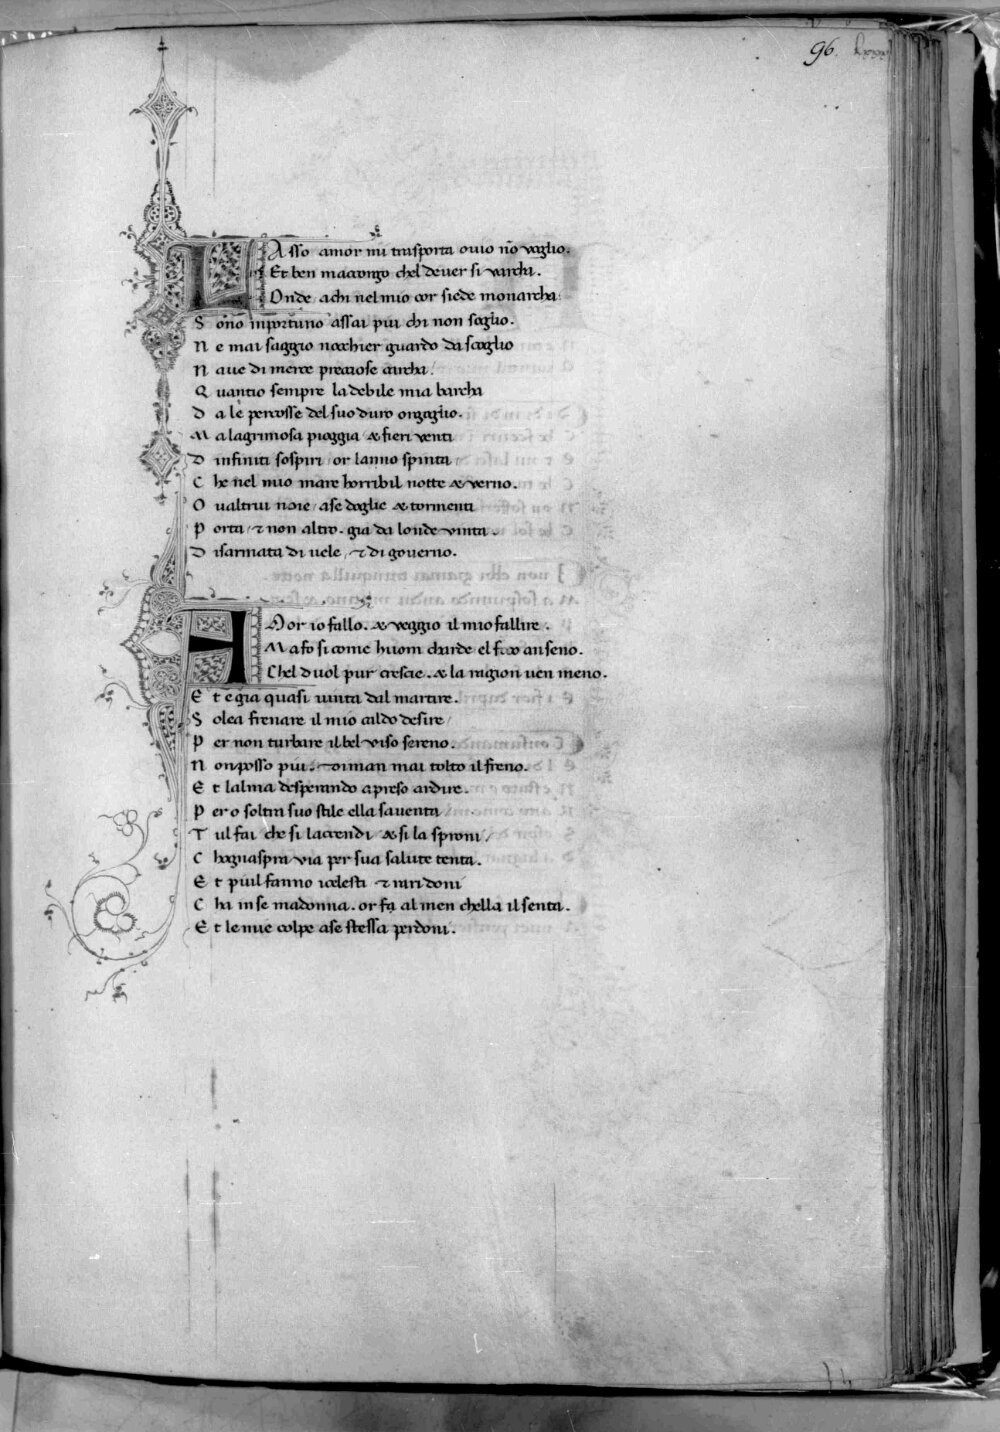 96.
LAsso amor mi trasporta ouio nõ uoglio.
Et ben maccorgo chel deuer si uarcha.
Onde achi nel mio cor siede monarcha
Sono inportuno assai piu chi non soglio.
Ne mai saggio nocchier guardo da scoglio
Naue di merce preciose carcha.
Quantio sempre la debile mia barcha
Da le percosse del suo duro orgoglio.
Ma lagrimosa pioggia & fieri uenti
Dinfiniti sospiri or lanno spinta
Che nel mio mare horribil notte & uerno.
Oualtrui noie ase doglie & tormenti
Porta / & non altro. gia da londe uinta
Disarmata di uele / & di gouerno.
AMor io fallo. & ueggio il mio fallire.
Ma fo si come huom charde el foco an seno.
Chel duol pur cresce. & la ragion uen meno.
Et e gia quasi uinta dal martire.
Solea frenare il mio caldo desire
Per non turbare il bel uiso sereno.
Non posso piu. di man mai tolto il freno.
Et lalma desperando a preso ardire.
Pero soltra suo stile ella sauenta
Tul fai che si laccendi & si la sproni
Chognaspra uia per sua salute tenta.
Et piuil fanno icelesti & rari doni
Cha in se madonna. or fa al men chella il senta.
Et le mie colpe ase stessa perdoni.